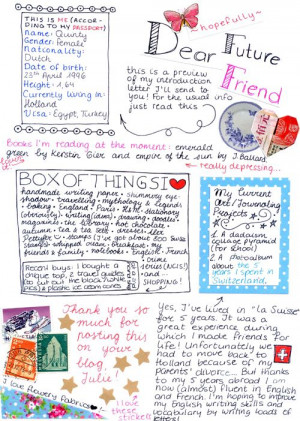 THIS IS ME (ACCOR-
DING TO MY PASSPORT)
name: Quinty
Gender: Female
nationality:
Dutch
Date of birth:
23th April 1996
Height: 1,64
Currently living in:
Holland
Visa: Egypt, Turkey
~hopefully~
Dear Future
Friend
this is a preview
of my introduction
letter I'll send to
you! For the usual info
just read this
Books I'm reading at the moment: emerald
green by Kerstin Gier and empire of the sun by J. Ballard
really depressing...
BOX OF THINGS I ♥
handmade writing paper • shimmery eye
shadow • travelling • mythology & legends
• baking • England • Paris • H&M • stationary
(obviously) • writing (also) • drawing • doodles •
magazines • the library • hot chocolate •
autumn • tea & tea sets • dresses • Lize
stamps • whipped cream • Breakfast • my
friends & family • notebooks • English • French
Recent buys: I bought a
unique top, 2 travel guides
to cut out the black/white
pics) & plastic ice cream cones
and
SHOPPING!
My Current
Art/Journaling
Projects
1. A dadaism
collage pyramid
(for school)
2. A photoalbum
about the 5
years I spent in
Switzerland,
Thank you so
much for
posting this
on your
blog,
Julie!
I love flowery Fabrics
I love
these
stickers
Yes, I've lived in "la Suisse"
for 5 years. It was a
great experience during
which I made Friends For
Life! Unfortunately we
had to move back to
Holland because of my
parents' divorce... But thanks
to my 5 years abroad I am
now (almost) fluent in English
and French. I'm hoping to improve
my English writing skills and
vocabulary by writing loads of
letters!